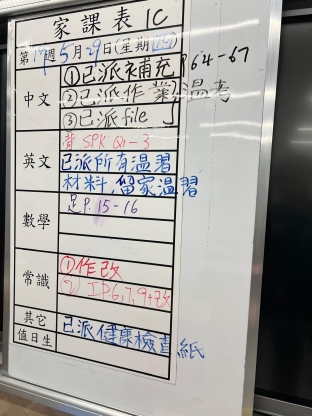 家課表 1C
第17週5月29日(星期四)
中文
①已派補充 P.64-67
②已派作業,溫考
③已派file
英文
背 SPK Q1-3
已派所有溫習
材料,留家溫習
數學
足P.15-16
常識
①作改
其它
已派健康檢查紙
值日生